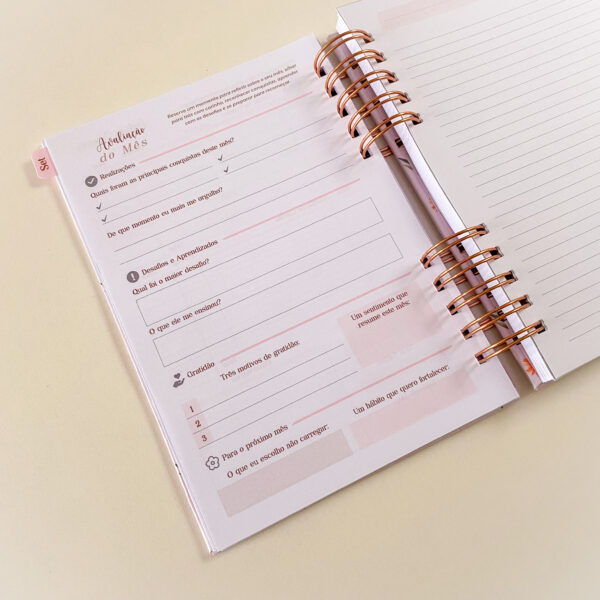 Reserve um momento para refletir sobre o seu mês, olhar
para trás com carinho, reconhecer conquistas, aprender
com os desafios e se preparar para recomeçar.
Avaliação
do Mês
Set
Realizações
Quais foram as principais conquistas deste mês?
De que momento eu mais me orgulho?
Desafios e Aprendizados
Qual foi o maior desafio?
O que ele me ensinou?
Gratidão
Três motivos de gratidão:
1
2
3
Um sentimento que
resume este mês:
Para o próximo mês
O que eu escolho não carregar:
Um hábito que quero fortalecer: